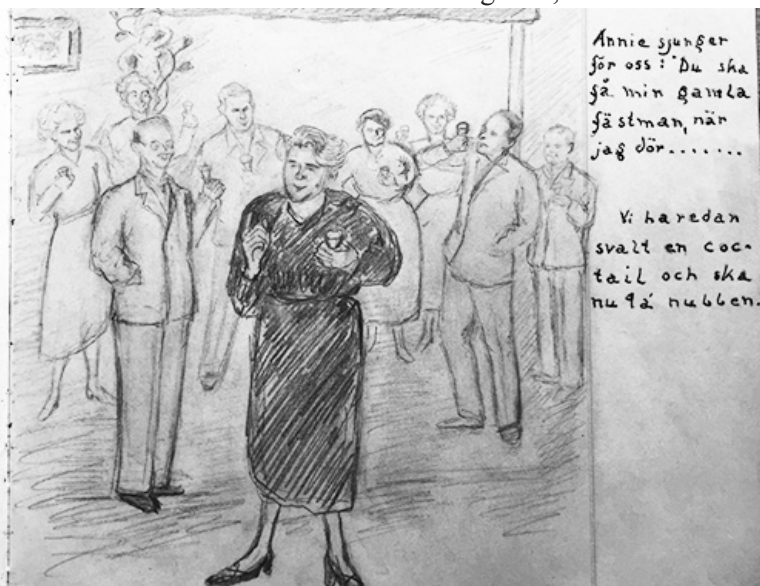 Annie sjunger
för oss: "Du ska
få min gamla
fästman, när
jag dör.......
Vi ha redan
svalt en coc-
tail och ska
nu få nubben.